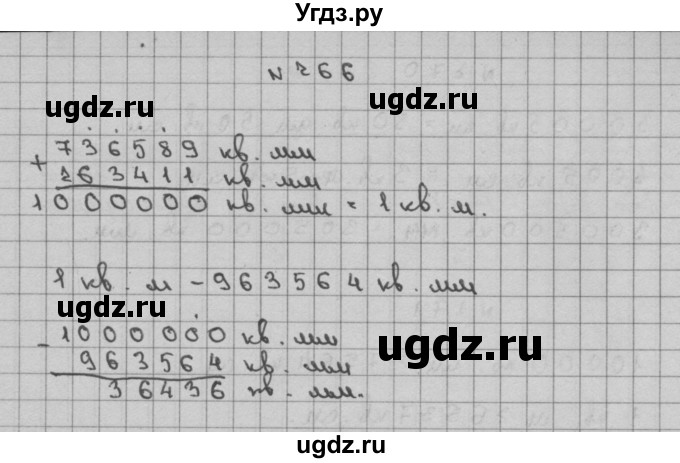 Угдз.ру
N 266
ugdz.ru
ugdz.ru
+ 736589 кв. мм
263411 кв. мм
1000000 кв. мм = 1 кв. м.
ugdz.ru
1 кв. м - 963564 кв. мм
ugdz.ru
ugdz.ru
- 1000000 кв. мм
963564 кв. мм
36436 кв. мм.
ugdz.ru
ugdz.ru